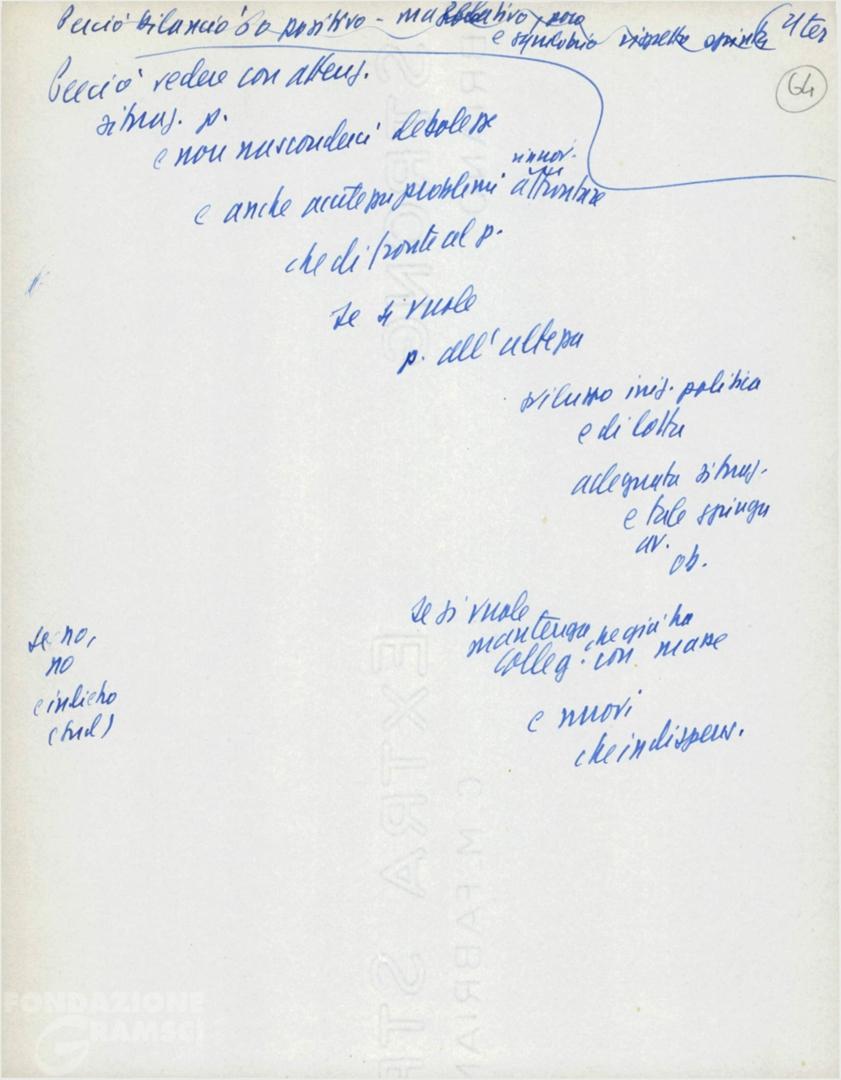 Perciò bilancio positivo - ma poco
e squilibrio rispetto spinte
4 ter
64
Perciò vedere con attenz.
situaz. p.
e non nasconderci debolezze
e anche acutezza problemi rinnov. affrontare
che di fronte al p.
se si vuole
p. all'altezza
sviluppo iniz. politica
e di lotta
adeguata situaz.
e tale spinga
av.
ob.
se si vuole
mantenga che già ha
colleg. con masse
e nuovi
che indispens.
se no,
no
FONDAZIONE
GRAMSCI
EXTRA STR
C.M.FABRIAN